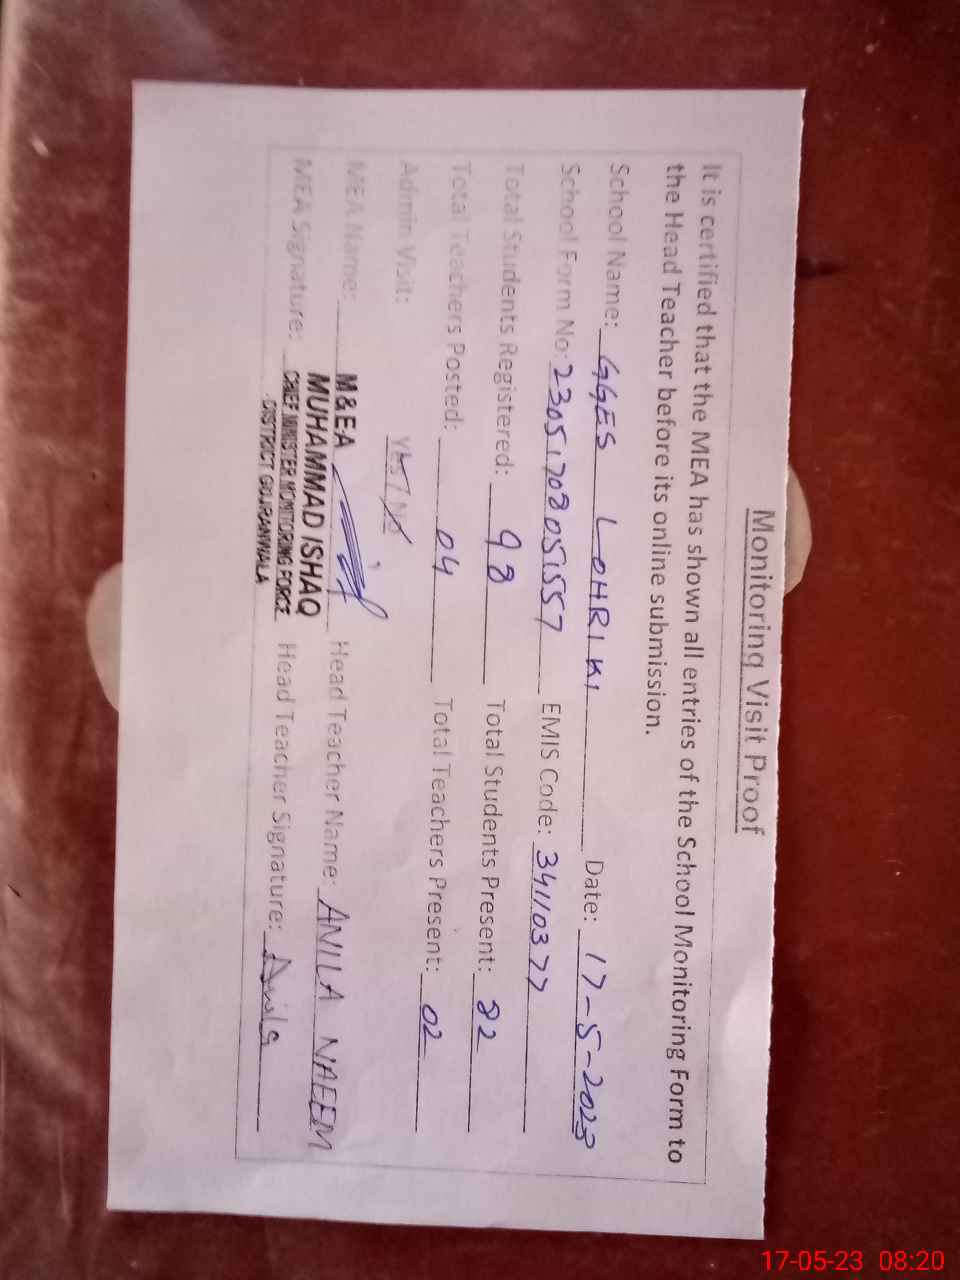 Monitoring Visit Proof
It is certified that the MEA has shown all entries of the School Monitoring Form to
the Head Teacher before its online submission.
School Name: GGES LOHRI KI Date: 17-5-2023
School Form No: EMIS Code: 34110377
Total Students Registered: 98 Total Students Present: 82
Total Teachers Posted: 04 Total Teachers Present: 02
Admin Visit: Yes / No
MEA Name: M&EA Head Teacher Name: ANILA NAEEM
MUHAMMAD ISHAQ
MEA Signature: CHIEF MINISTER MONITORING FORCE Head Teacher Signature: Anila
DISTRICT GUJRANWALA
17-05-23 08:20